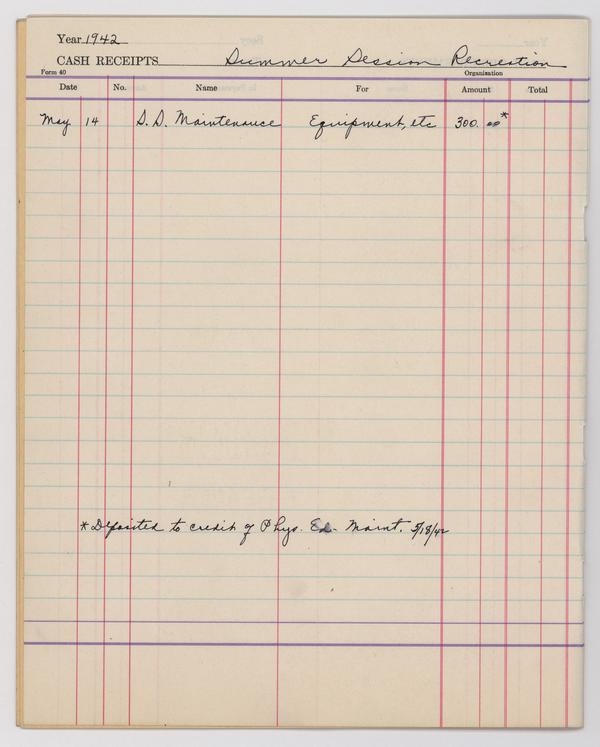 Year 1942
CASH RECEIPTS Summer Session Recreation
Form 40 Organization
Date No. Name For Amount Total
May 14 S. S. Maintenance Equipment, etc 300.00*
* Deposited to credit of Phys. Ed. Maint. 5/18/42